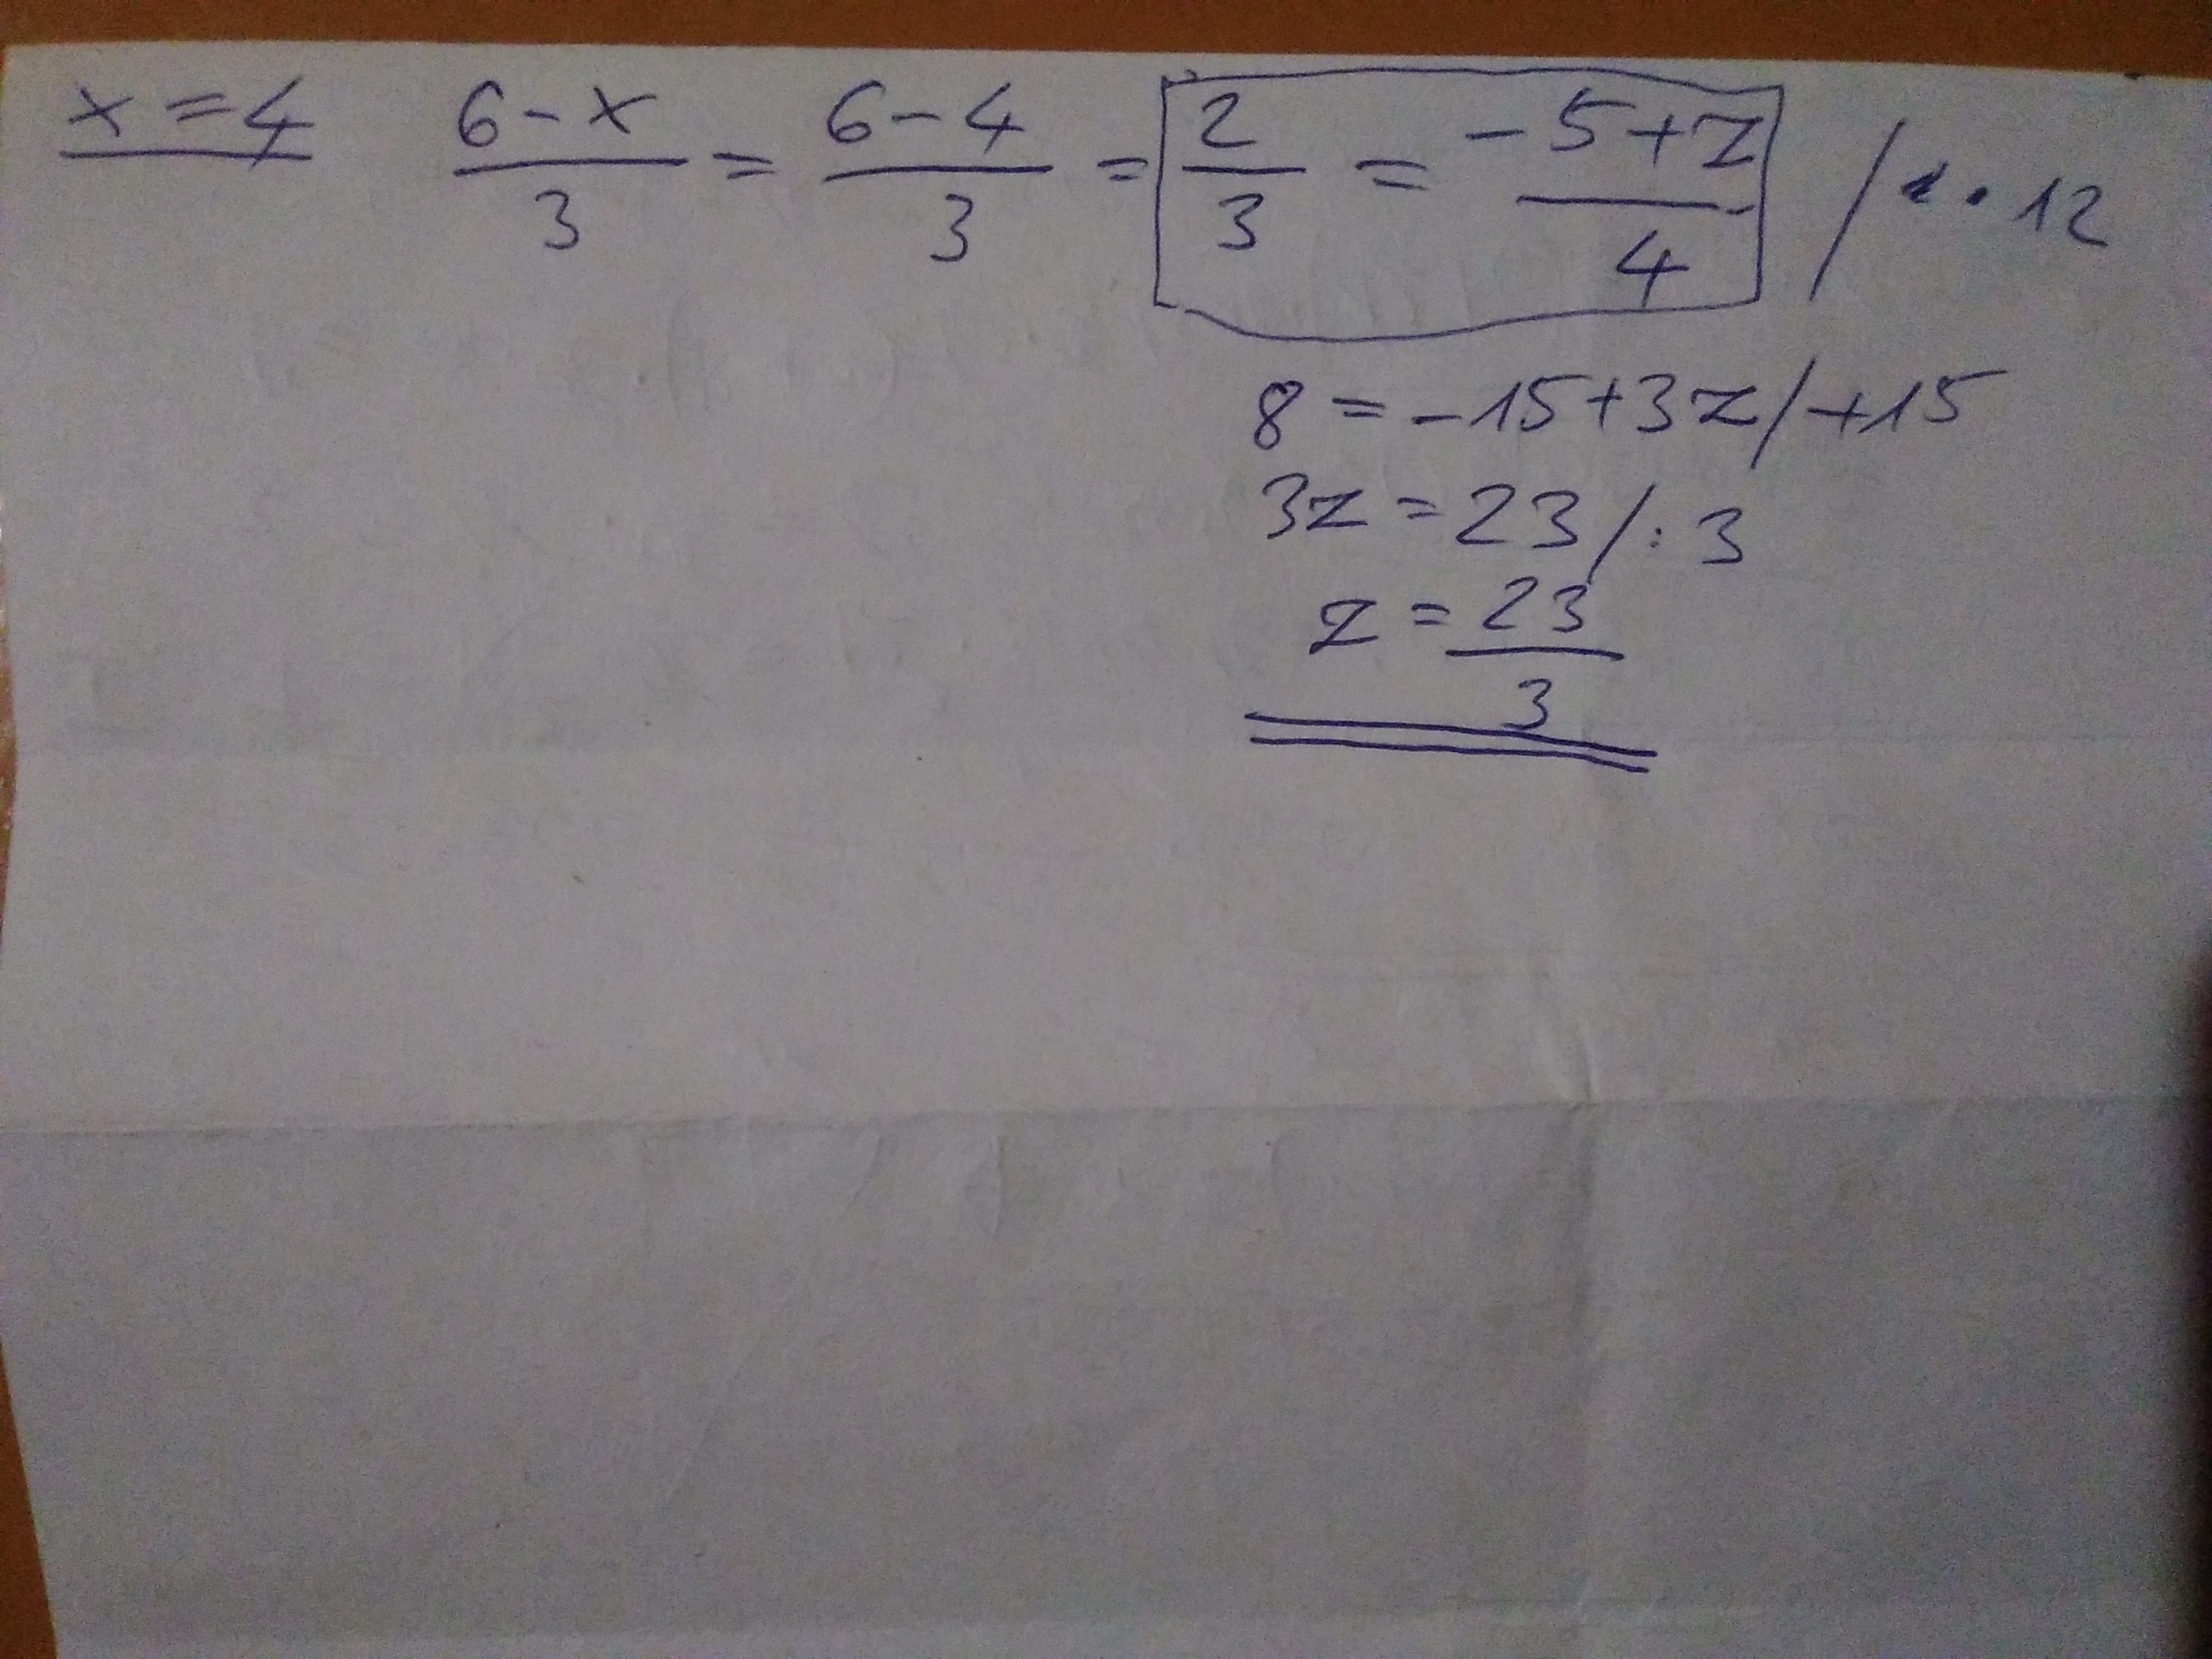 x = 4 6-x/3 = 6-4/3 = 2/3 = -5+z/4 / · 12
8 = -15+3z /+15
3z = 23 / : 3
z = 23/3